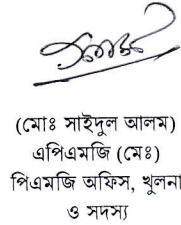 (মোঃ সাইদুল আলম)
এপিএমজি (মেঃ)
পিএমজি অফিস, খুলনা
ও সদস্য